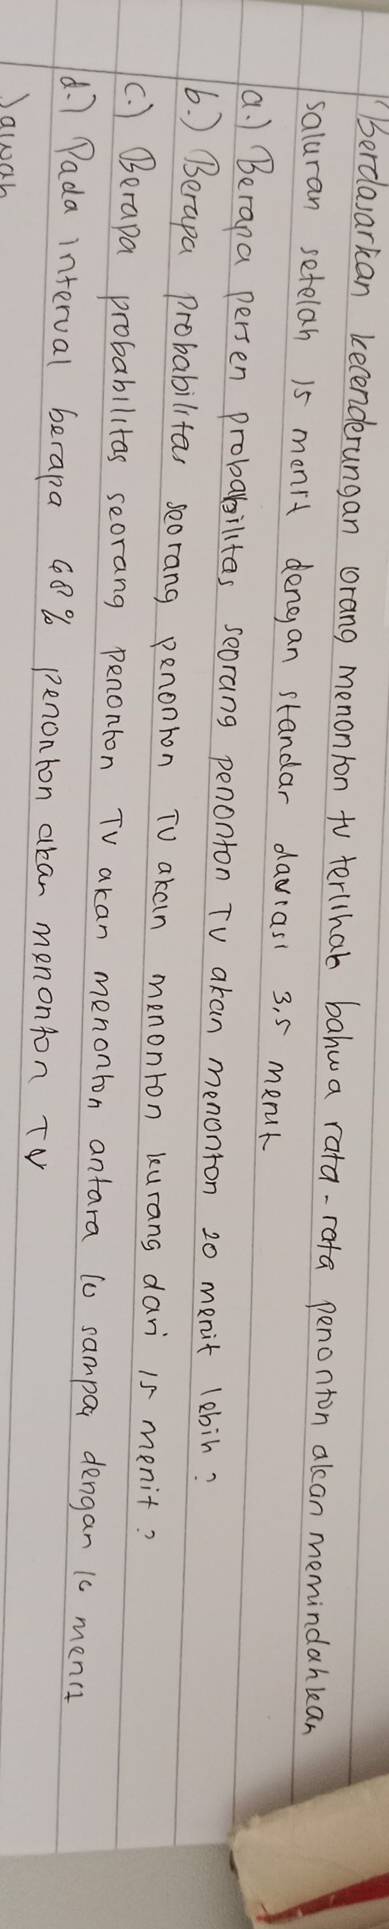 Berdasarkan kecenderungan orang menonton tv terlihat bahwa rata-rata penonton akan memindahkan
saluran setelah 15 menit dengan standar daviasi 3,5 menit
a.) Berapa persen probabilitas seorang penonton TV akan menonton 20 menit lebih?
b.) Berapa probabilitas seorang penonton TV akan menonton kurang dari 15 menit?
c.) Berapa probabilitas seorang penonton TV akan menonton antara 10 sampai dengan 16 menit
d.) Pada interval berapa 68% penonton akan menonton TV
Jawab